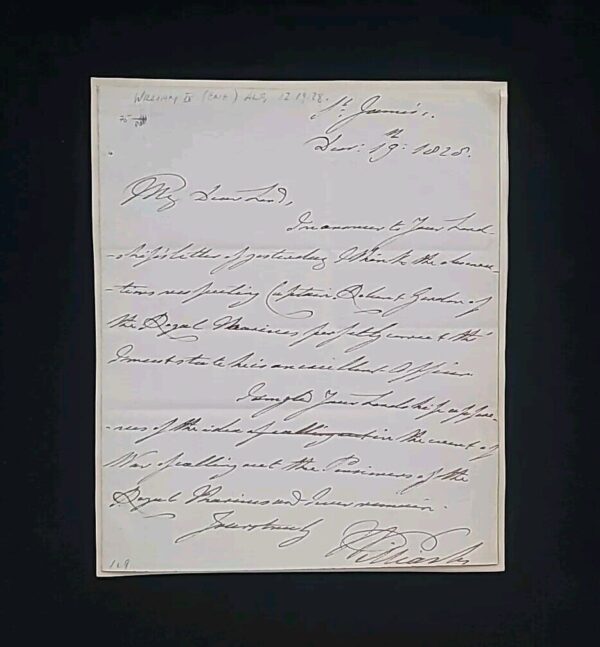 WILLIAM IV (ENG) ALS, 12.19.28.
75
St. James's.
Decr: 19th: 1828.
My Dear Lord,
In answer to Your Lord-
-ship's letter of yesterday I think the observa-
-tions respecting Captain Robert Gordon of
the Royal Marines perfectly correct tho'
I must state he is an excellent Officer.
Your Lordship appro-
-ves of the idea of calling out in the event of
War of calling out the Pensioners of the
Royal Marines and I ever remain
Yours truly
William
129